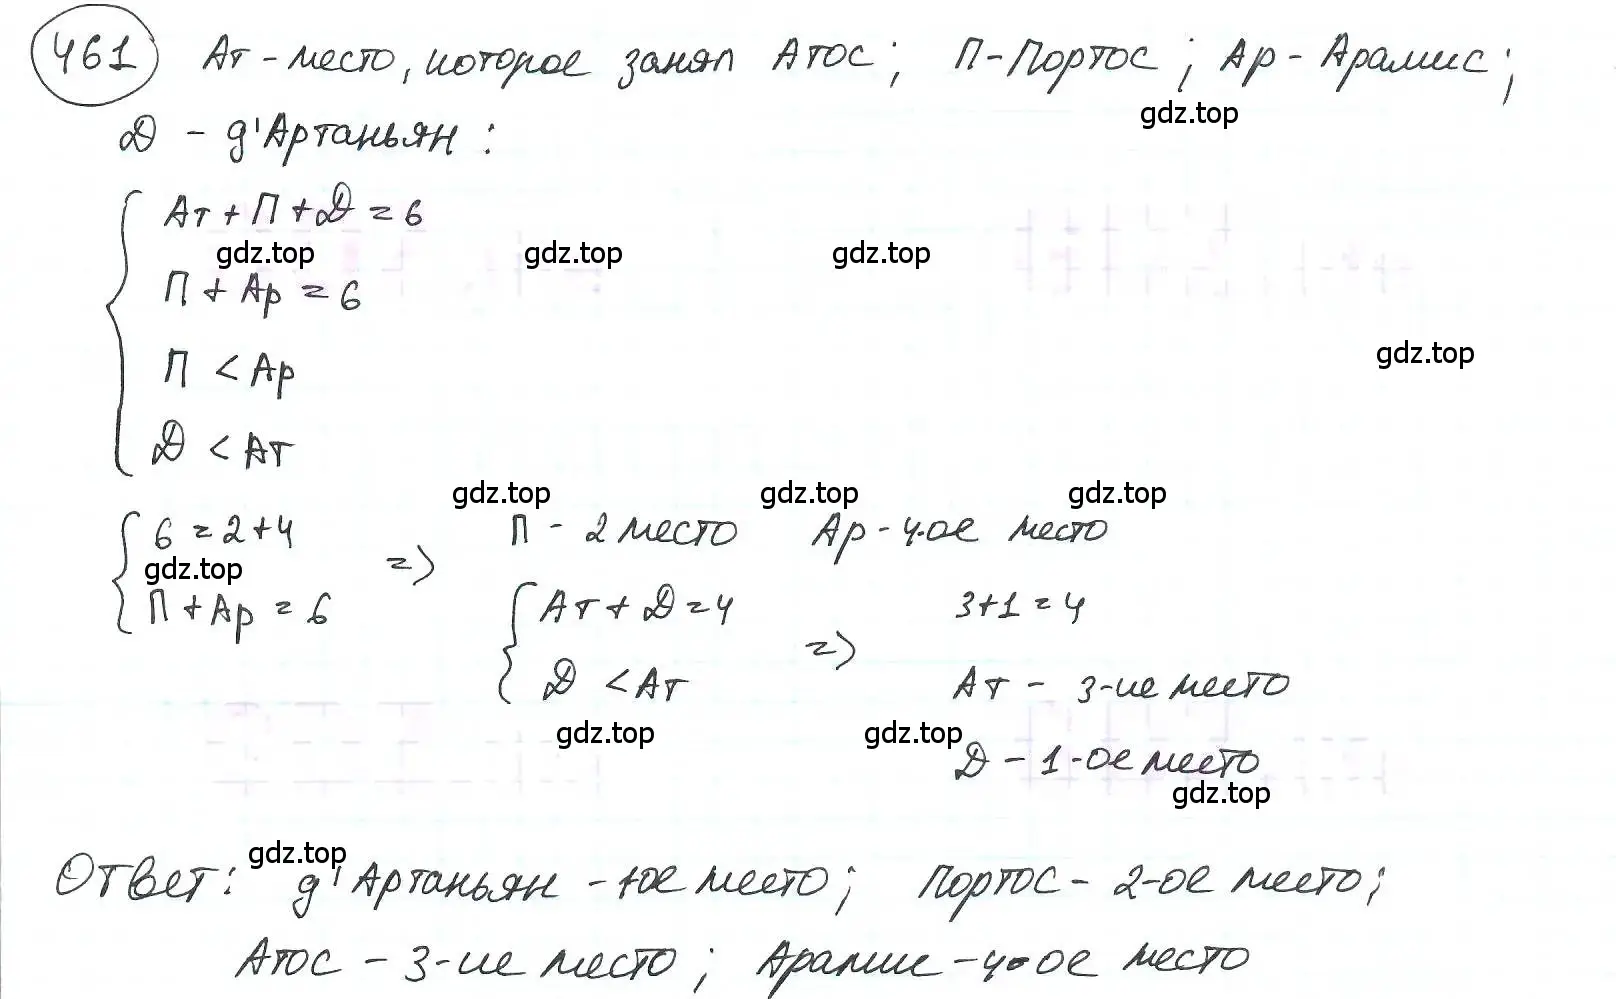 461 Ат - место, которое занял Атос; П - Портос; Ар - Арамис;
gdz.top
Д - д'Артаньян:
Ат + П + Д = 6
gdz.top gdz.top gdz.top
П + Ар = 6
gdz.top
П < Ар
Д < Ат
gdz.top gdz.top gdz.top
6 = 2 + 4 => П - 2 место Ар - 4-ое место
gdz.top
П + Ар = 6 Ат + Д = 4 => 3 + 1 = 4
Д < Ат Ат - 3-ие место
gdz.top gdz.top
Д - 1-ое место
gdz.top
gdz.top
Ответ: д'Артаньян - 1ое место; Портос - 2-ое место;
Атос - 3-ие место; Арамис - 4-ое место